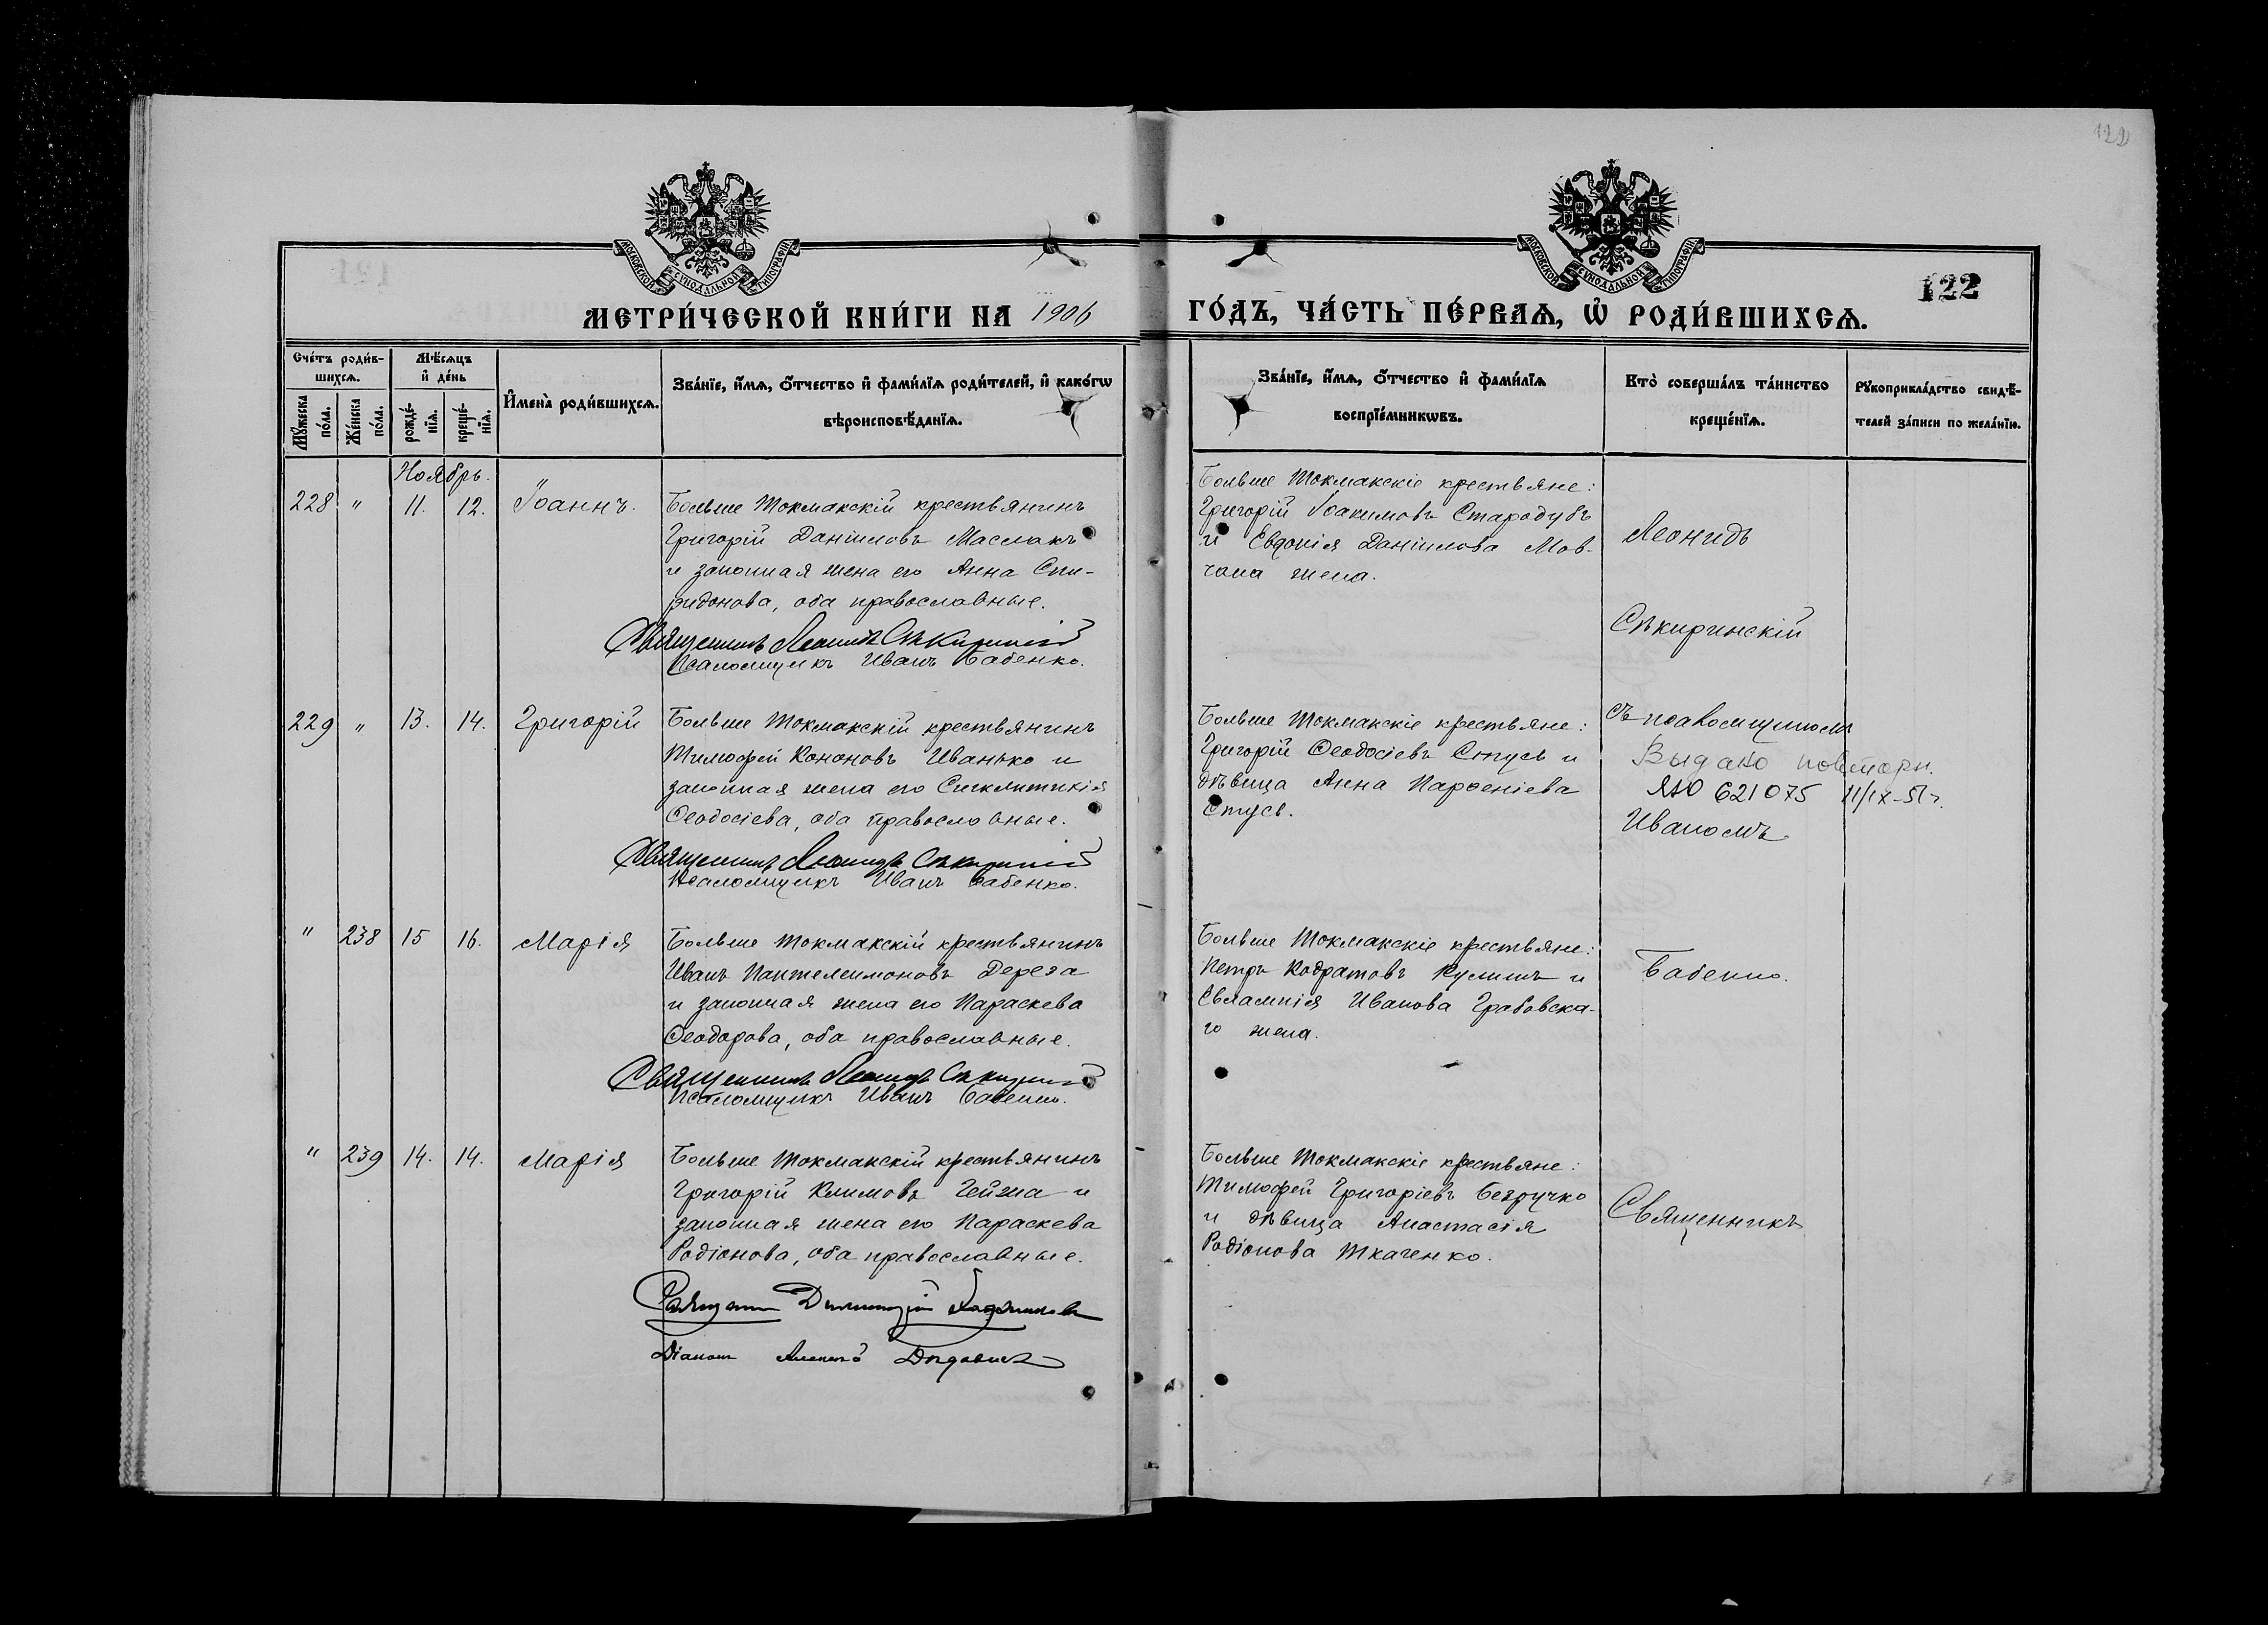 122
МОСКОВСКОЙ СѴНОДАЛЬНОЙ ТИПОГРАФІИ
МОСКОВСКОЙ СѴНОДАЛЬНОЙ ТИПОГРАФІИ
122
МЕТРИ́ЧЕСКОЙ КНИ́ГИ НА 1906 ГО́ДЪ, ЧА́СТЬ ПЕ́РВАѦ, Ѡ РОДИ́ВШИХСѦ.
Сче́тъ роди́в-
шихсѧ.
Мѣ́сѧцъ
и де́нь
Мꙋ́жеска
по́ла.
Же́нска
по́ла.
рожде́-
нїѧ.
креще́-
нїѧ.
Имена̀ роди́вшихсѧ.
Зва́нїе, и́мѧ, о́тчество и фами́лїѧ роди́телей, и како́гѡ
вѣроисповѣ́данїѧ.
Зва́нїе, и́мѧ, о́тчество и фами́лїѧ
воспрїе́мникѡвъ.
Кто̀ соверша́лъ та́инство
креще́нїѧ.
Рꙋкоприкла́дство свидѣ́-
телей за́писи по жела́нїю.
Ноябрь.
228 " 11. 12. Іоаннъ.
Больше Токмакскій крестьянинъ
Григорій Даніиловъ Маслакъ
и законная жена его Анна Спи-
ридонова, оба православные.
Священникъ Леонидъ Сѣкиринскій
Псаломщикъ Иванъ Бабенко.
Больше Токмакскіе крестьяне:
Григорій Іоакимовъ Стародубъ
и Евдокія Даніилова Мов-
чана жена.
Леонидъ
Сѣкиринскій
229 " 13. 14. Григорій
Больше Токмакскій крестьянинъ
Тимофей Кононовъ Иванько и
законная жена его Сигклитикія
Ѳеодосіева, оба православные.
Священникъ Леонидъ Сѣкиринскій
Псаломщикъ Иванъ Бабенко.
Больше Токмакскіе крестьяне:
Григорій Ѳеодосіевъ Стусь и
дѣвица Анна Парѳеніева
Стусь.
съ псаломщикомъ
Выдано повторн.
ЯЮ 621075 11/IX-51г.
Иваномъ
" 238 15 16. Марія
Больше Токмакскій крестьянинъ
Иванъ Пантелеимоновъ Дереза
и законная жена его Параскева
Ѳеодорова, оба православные.
Священникъ Леонидъ Сѣкиринскій
Псаломщикъ Иванъ Бабенко.
Больше Токмакскіе крестьяне:
Петръ Кодратовъ Кулишъ и
Евлампія Иванова Грабовска-
го жена.
Бабенко.
" 239 14. 14. Марія
Больше Токмакскій крестьянинъ
Григорій Климовъ Гейжа и
законная жена его Параскева
Родіонова, оба православные.
Священникъ Димитрій
Діаконъ Алексѣй
Больше Токмакскіе крестьяне:
Тимофей Григоріевъ Безручко
и дѣвица Анастасія
Родіонова Ткаченко.
Священникъ